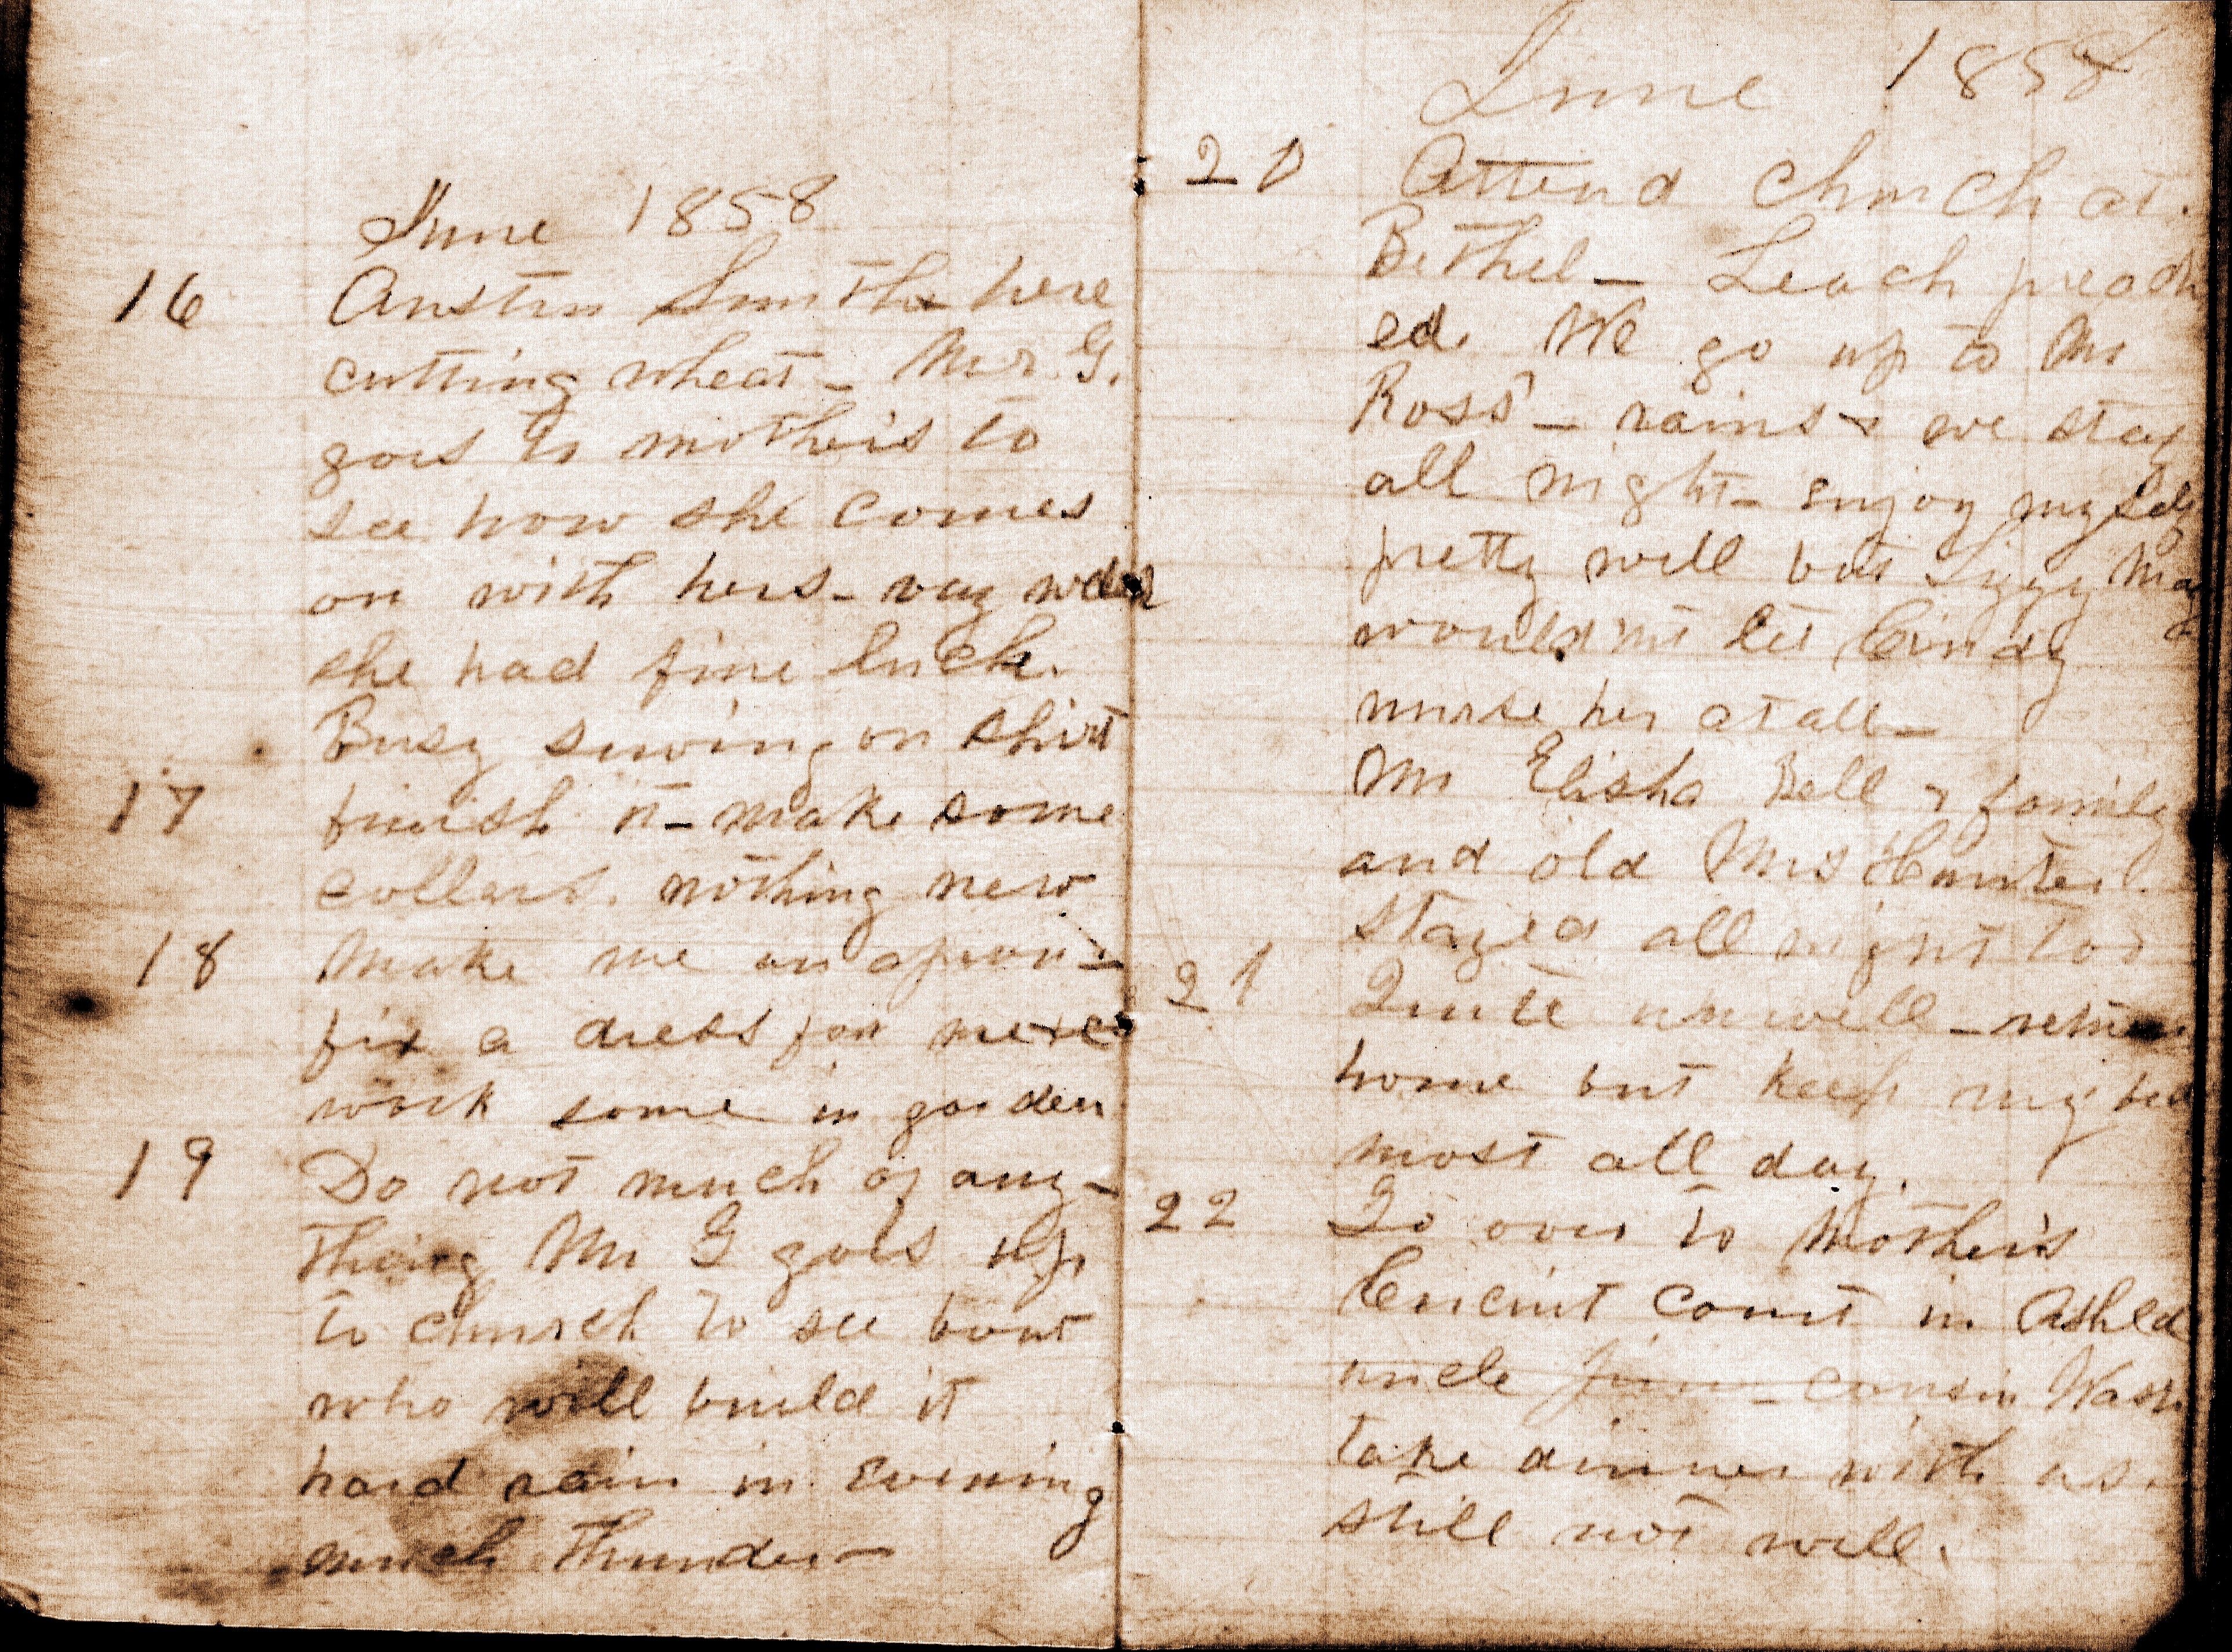 June 1858
16 Austin Smith here
cutting wheat - Mr. G.
goes to mother's to
see how she comes
on with hers - very well
she had fine luck.
Busy sewing on shirt
17 finish it - make some
collars. nothing new
18 Make me an apron -
fix a dress for
work some in garden
19 Do not much of any-
thing Mr G goes up
to church to see bout
who will build it
hard rain in evening
much thunder -
June 1858
20 Attend church at
Bethel - Leach preach
ed. We go up to Mr
Ross' - rains & we stay
all night - enjoy myself
pretty well but Lizzy May
would'nt let Cindy
nurse her at all -
Mr Elisha Bell & family
and old Mrs Hunter
stayed all night too
21 Quite unwell - return
home but keep my bed
most all day.
22 Go over to Mother's
Circuit Court in Ashld
uncle Jim - cousin Wash
take dinner with us.
still not well.